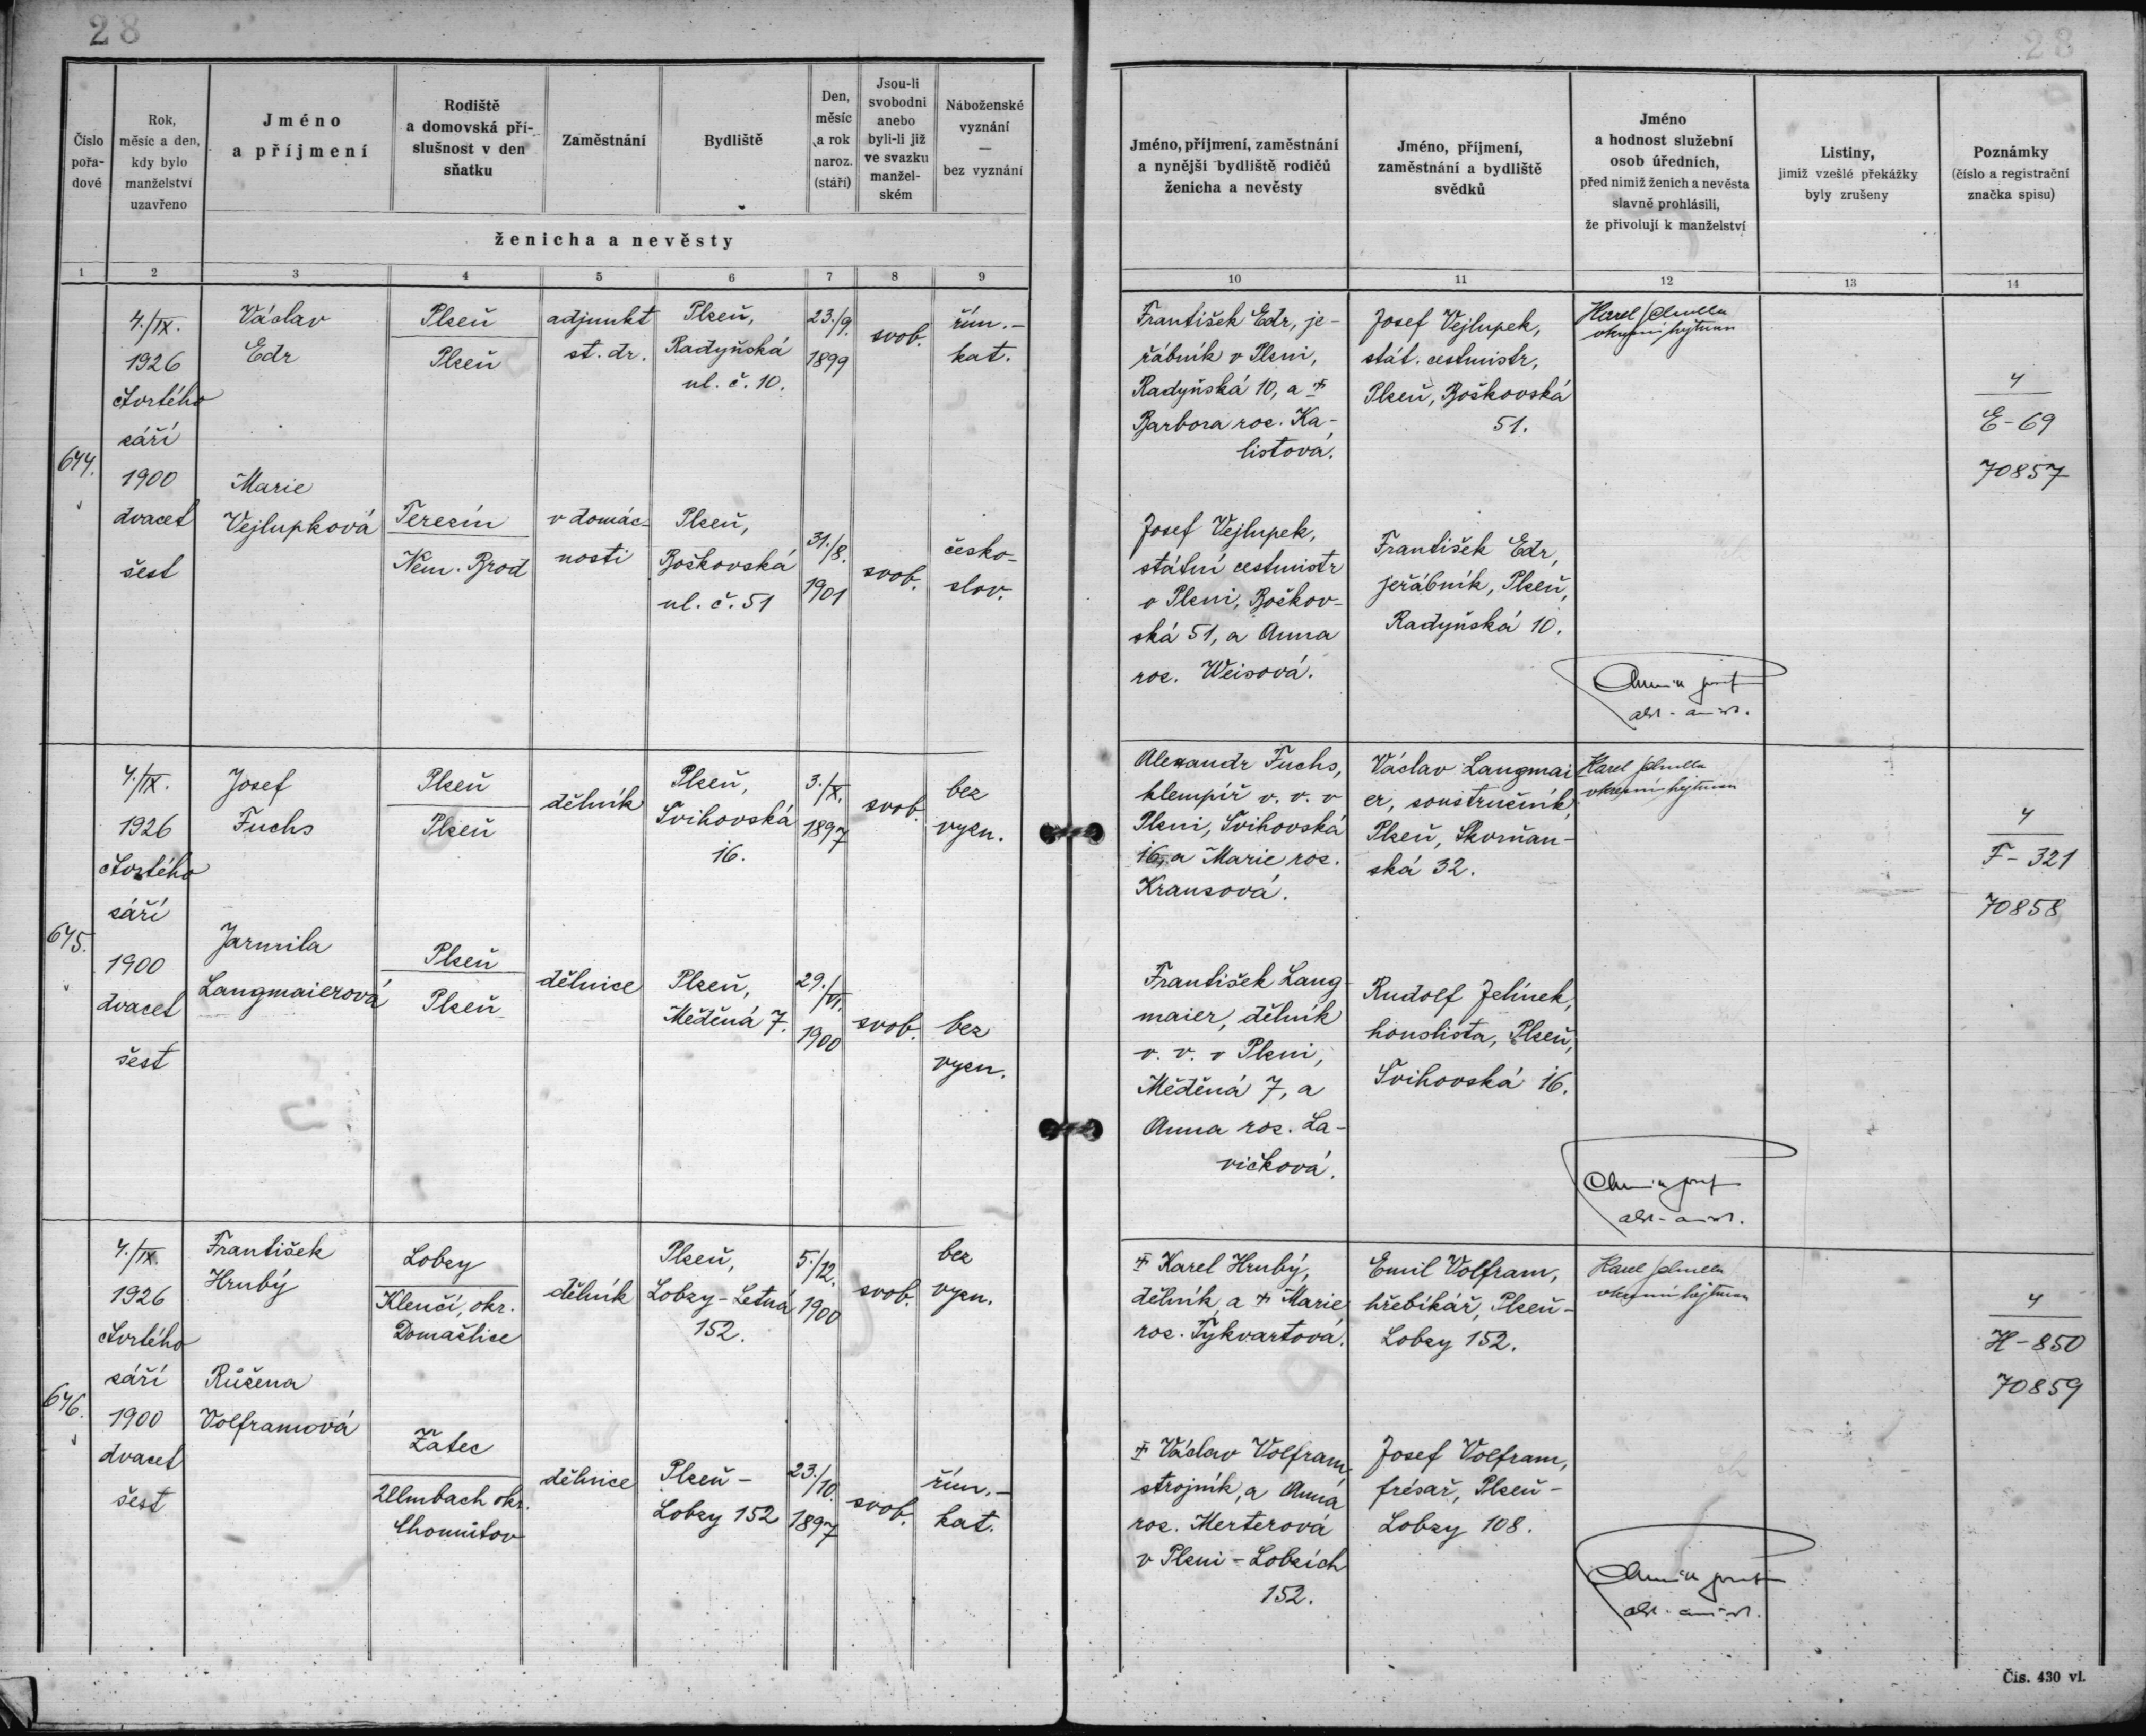 28
28
Číslo
pořa-
dové
Rok,
měsíc a den,
kdy bylo
manželství
uzavřeno
Jméno
a příjmení
Rodiště
a domovská pří-
slušnost v den
sňatku
Zaměstnání
Bydliště
Den,
měsíc
a rok
naroz.
(stáří)
Jsou-li
svobodni
anebo
byli-li již
ve svazku
manžel-
ském
Náboženské
vyznání
—
bez vyznání
ženicha a nevěsty
Jméno, příjmení, zaměstnání
a nynější bydliště rodičů
ženicha a nevěsty
Jméno, příjmení,
zaměstnání a bydliště
svědků
Jméno
a hodnost služební
osob úředních,
před nimiž ženich a nevěsta
slavně prohlásili,
že přivolují k manželství
Listiny,
jimiž vzešlé překážky
byly zrušeny
Poznámky
(číslo a registrační
značka spisu)
1 2 3 4 5 6 7 8 9 10 11 12 13 14
644.
4./IX.
1926
čtvrtého
září
1900
dvacet
šest
Václav
Edr
Plzeň
Plzeň
adjunkt
st. dr.
Plzeň,
Radyňská
ul. č. 10.
23./9.
1899
svob.
řím.-
kat.
Marie
Vejlupková
Terezín
Něm. Brod
v domác-
nosti
Plzeň,
Boškovská
ul. č. 51
31./8.
1901
svob.
česko-
slov.
František Edr, je-
řábník v Plzni,
Radyňská 10, a
Barbora roz. Ka-
listová.
Josef Vejlupek,
státní cestmistr
v Plzni, Boškov-
ská 51, a Anna
roz. Weisová.
Josef Vejlupek,
stát. cestmistr,
Plzeň, Boškovská
51.
František Edr,
jeřábník, Plzeň,
Radyňská 10.
Karel
okresní hejtman
4
E-69
70857
645.
4./IX.
1926
čtvrtého
září
1900
dvacet
šest
Josef
Fuchs
Plzeň
Plzeň
dělník
Plzeň,
Švihovská
16.
3./X.
1897
svob.
bez
vyzn.
Jarmila
Langmaierová
Plzeň
Plzeň
dělnice
Plzeň,
Měděná 7.
29./VI.
1900
svob.
bez
vyzn.
Alexandr Fuchs,
klempíř v. v. v
Plzni, Švihovská
16, a Marie roz.
Krausová.
František Lang-
maier, dělník
v. v. v Plzni,
Měděná 7, a
Anna roz. La-
vičková.
Václav Langmai
er, soustružník,
Plzeň, Skvrňan-
ská 32.
Rudolf Jelínek,
houslista, Plzeň,
Švihovská 16.
Karel
okresní hejtman
4
F-321
70858
646.
4./IX.
1926
čtvrtého
září
1900
dvacet
šest
František
Hrubý
Lobzy
Klenčí, okr.
Domažlice
dělník
Plzeň,
Lobzy-Letná
152.
5./12.
1900
svob.
bez
vyzn.
Růžena
Volframová
Žatec
Ullmbach okr.
Chomutov
dělnice
Plzeň-
Lobzy 152
23./10.
1897
svob.
řím.-
kat.
Karel Hrubý,
dělník, a Marie
roz. Tykvartová.
Václav Volfram,
strojník, a Anna
roz. Merterová
v Plzni-Lobzích
152.
Emil Volfram,
hřebíkář, Plzeň-
Lobzy 152.
Josef Volfram,
frésař, Plzeň-
Lobzy 108.
Karel
okresní hejtman
4
H-850
70859
Čís. 430 vl.